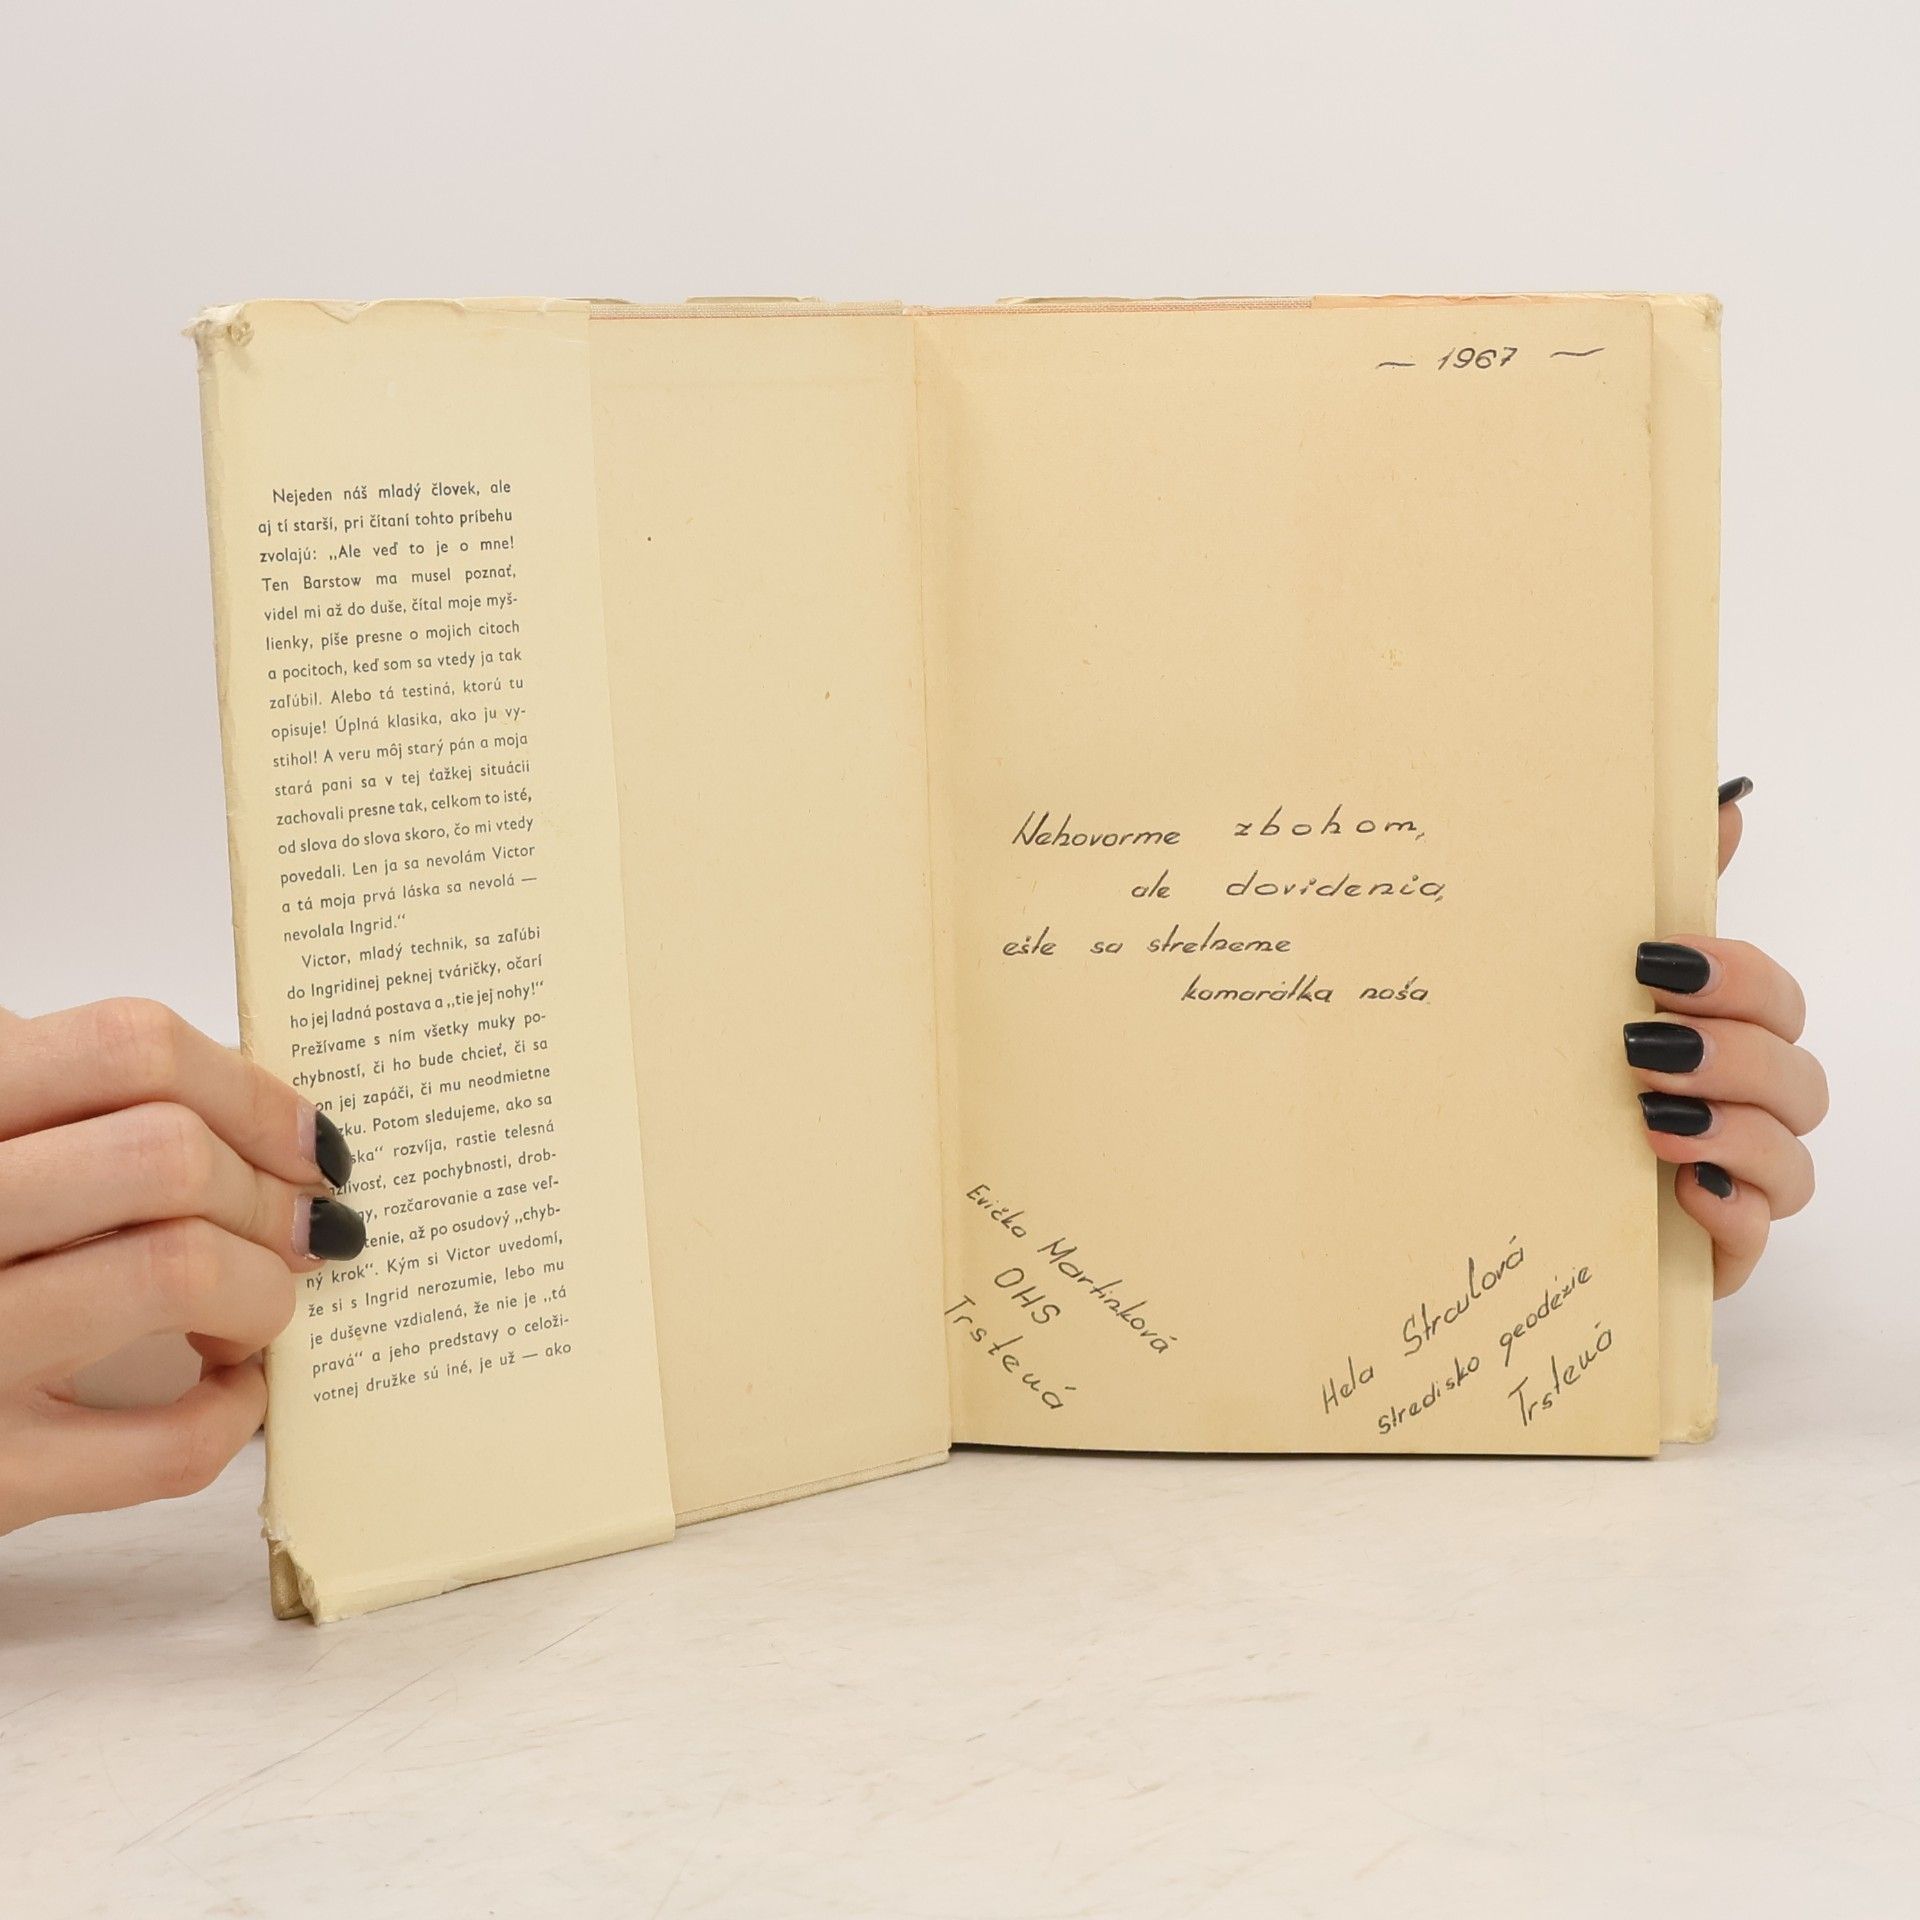 Nejeden náš mladý človek, ale
aj tí starší, pri čítaní tohto príbehu
zvolajú: „Ale veď to je o mne!
Ten Barstow ma musel poznať,
videl mi až do duše, čítal moje myš-
lienky, píše presne o mojich citoch
a pocitoch, keď som sa vtedy ja tak
zaľúbil. Alebo tá testiná, ktorú tu
opisuje! Úplná klasika, ako ju vy-
stihol! A veru môj starý pán a moja
stará pani sa v tej ťažkej situácii
zachovali presne tak, celkom to isté,
od slova do slova skoro, čo mi vtedy
povedali. Len ja sa nevolám Victor
a tá moja prvá láska sa nevolá —
nevolala Ingrid.“
Victor, mladý technik, sa zaľúbi
do Ingridinej peknej tváričky, očarí
ho jej ladná postava a „tie jej nohy!“
Prežívame s ním všetky muky po-
chybností, či ho bude chcieť, či sa
on jej zapáči, či mu neodmietne
zku. Potom sledujeme, ako sa
ska“ rozvíja, rastie telesná
zlivosť, cez pochybnosti, drob-
gy, rozčarovanie a zase veľ-
tenie, až po osudový „chyb-
ný krok“. Kým si Victor uvedomí,
že si s Ingrid nerozumie, lebo mu
je duševne vzdialená, že nie je „tá
pravá“ a jeho predstavy o celoži-
votnej družke sú iné, je už — ako
— 1967 —
Nehovorme zbohom,
ale dovidenia,
ešte sa stretneme
kamarátka naša
Evička Martinková
OHS
Trstená
Hela Straulová
stredisko geodézie
Trstená